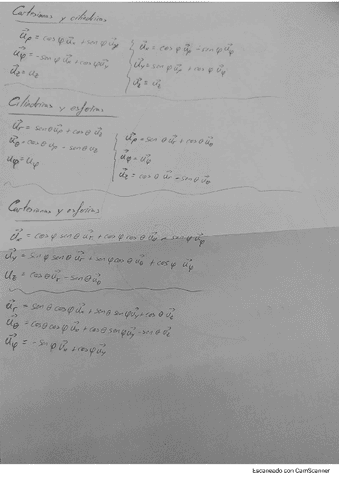 Cartesianas y cilíndricas
u⃗ρ = cosφ u⃗x + senφ u⃗y
u⃗φ = -senφ u⃗x + cosφ u⃗y
u⃗z = u⃗z
u⃗x = cosφ u⃗ρ - senφ u⃗φ
u⃗y = senφ u⃗ρ + cosφ u⃗φ
u⃗z = u⃗z
Cilíndricas y esféricas
u⃗r = senθ u⃗ρ + cosθ u⃗z
u⃗θ = cosθ u⃗ρ - senθ u⃗z
u⃗φ = u⃗φ
u⃗ρ = senθ u⃗r + cosθ u⃗θ
u⃗φ = u⃗φ
u⃗z = cosθ u⃗r - senθ u⃗θ
Cartesianas y esféricas
u⃗x = cosφ senθ u⃗r + cosφ cosθ u⃗θ - senφ u⃗φ
u⃗y = senφ senθ u⃗r + senφ cosθ u⃗θ + cosφ u⃗φ
u⃗z = cosθ u⃗r - senθ u⃗θ
u⃗r = senθ cosφ u⃗x + senθ senφ u⃗y + cosθ u⃗z
u⃗θ = cosθ cosφ u⃗x + cosθ senφ u⃗y - senθ u⃗z
u⃗φ = -senφ u⃗x + cosφ u⃗y
Escaneado con CamScanner